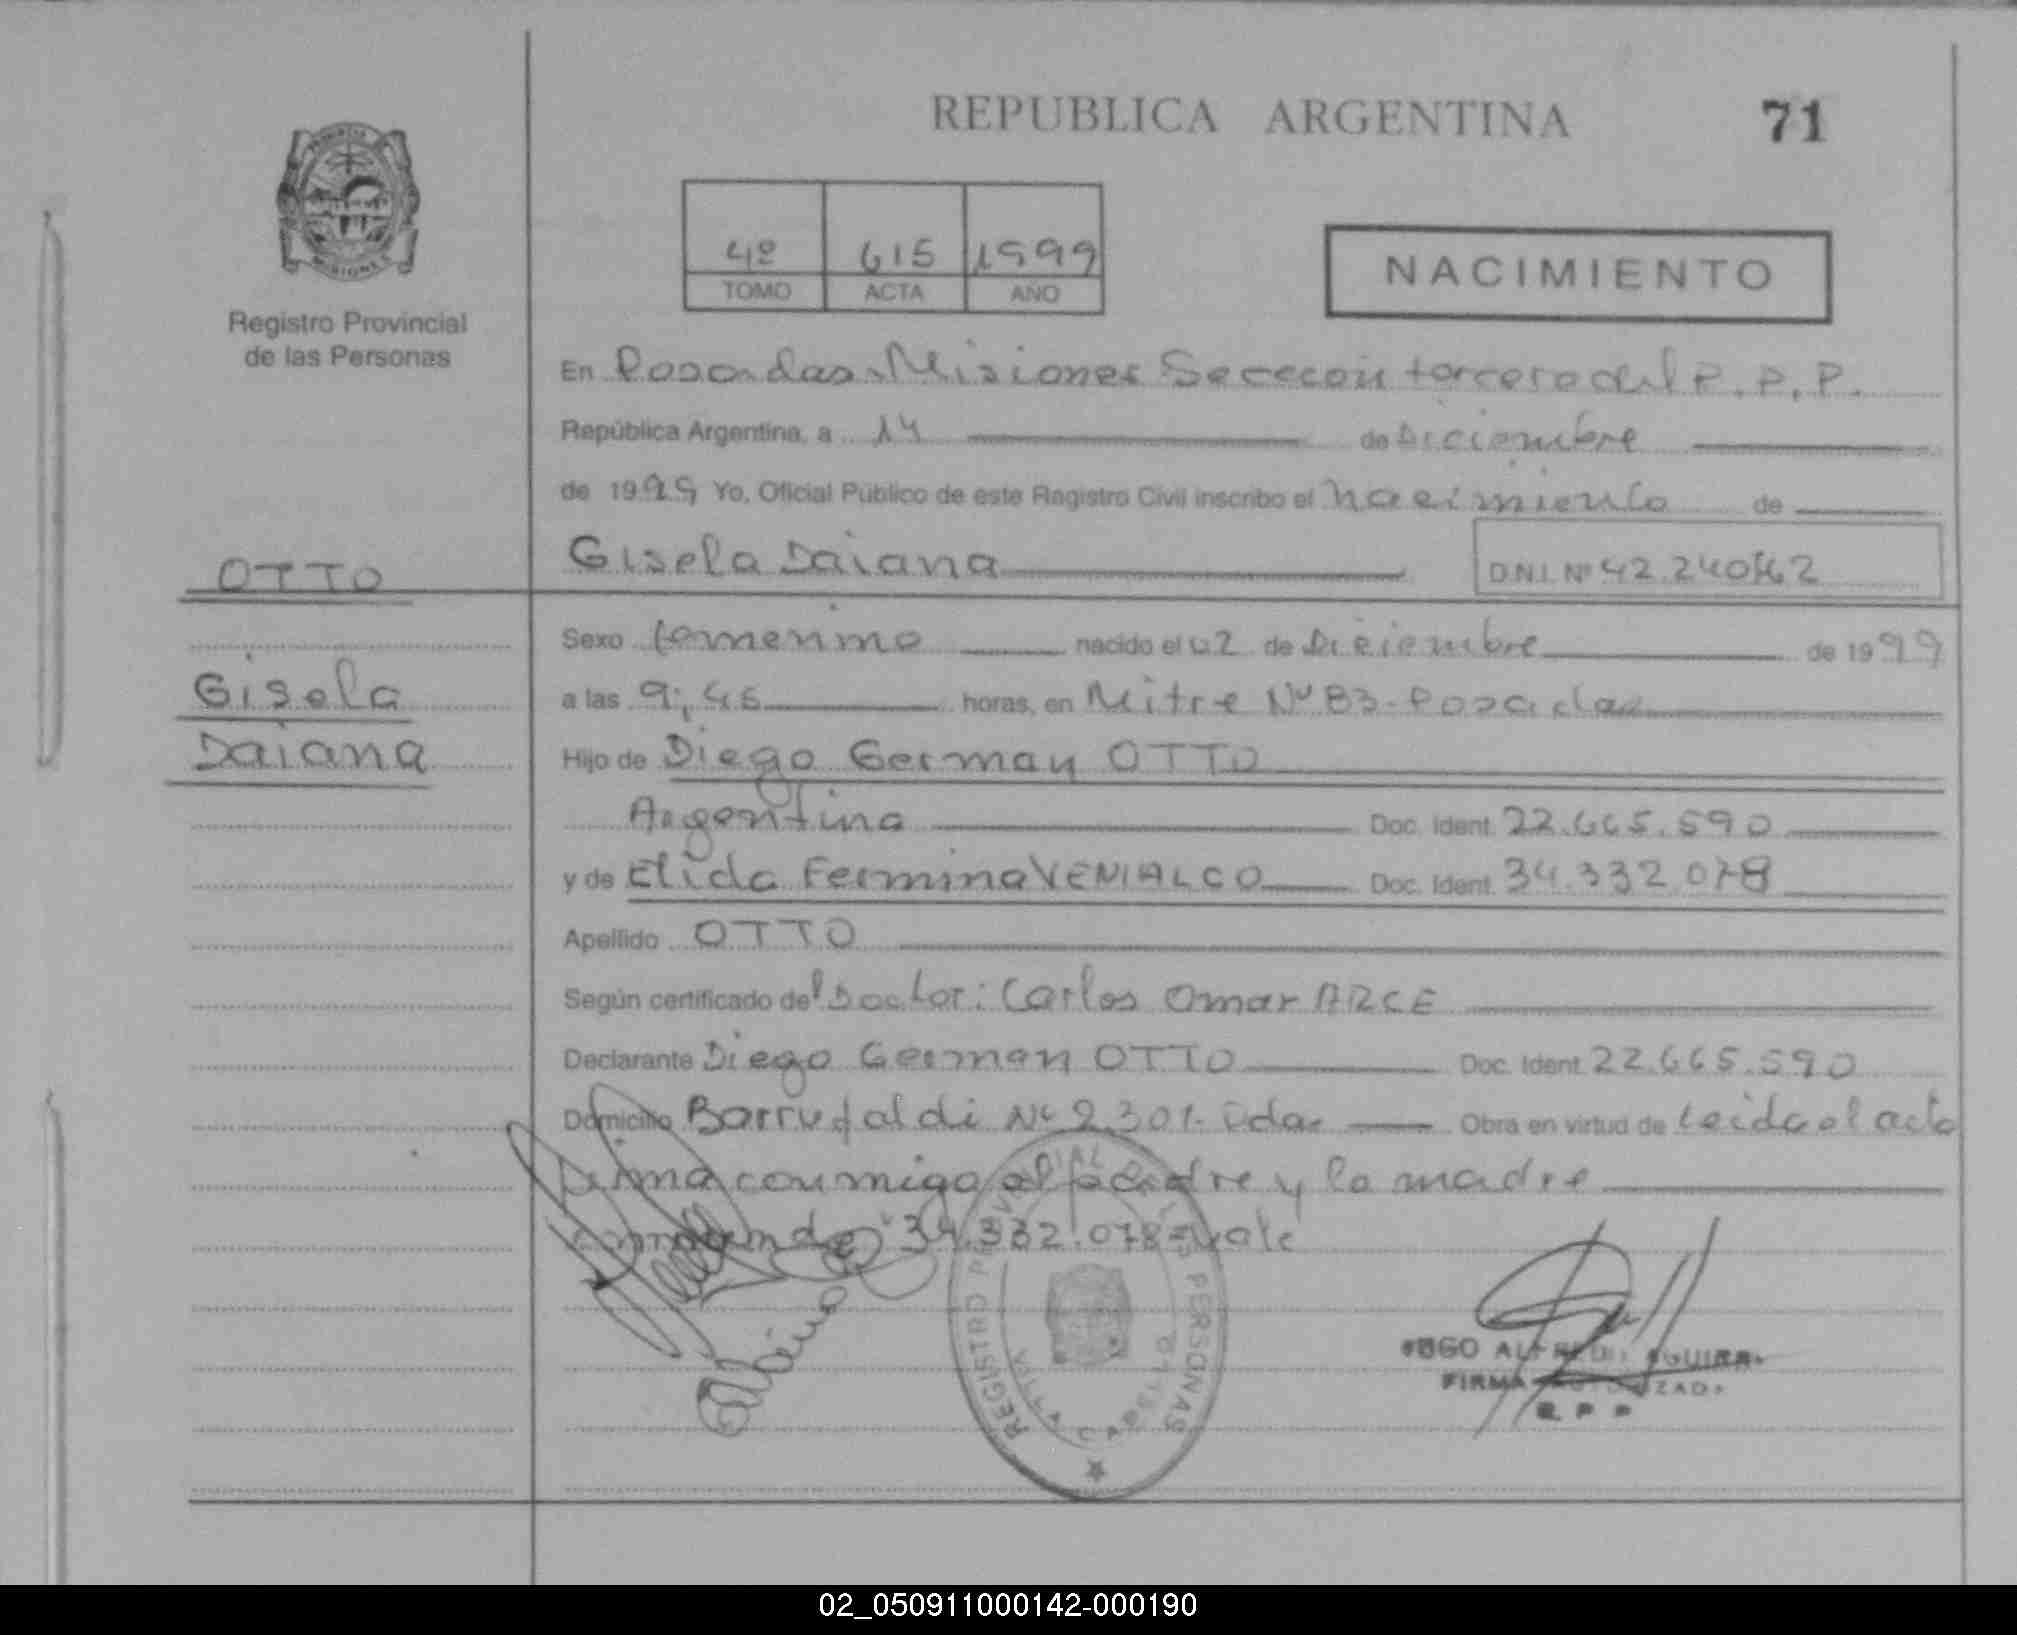 REPUBLICA ARGENTINA
71
MISIONES
Registro Provincial
de las Personas
4º 615 1999
TOMO ACTA AÑO
NACIMIENTO
En Posadas Misiones Sección tercera del R.P.P.
República Argentina, a 14 de Diciembre
de 1999 Yo, Oficial Público de este Registro Civil inscribo el nacimiento de
OTTO
Gisela Daiana
D.N.I. Nº 42.240
Sexo femenino nacido el 02 de Diciembre de 1999
Gisela
a las 9;45 horas, en Mitre Nº 83-Posadas
Daiana
Hijo de Diego German OTTO
Argentina Doc. Ident. 22.665.590
y de Elida Fermina VENIALGO Doc. Ident. 34.332.078
Apellido OTTO
Según certificado del Doctor: Carlos Omar ARCE
Declarante Diego German OTTO Doc. Ident. 22.665.590
Domicilio Barrufaldi Nº 2.301- Pdas Obra en virtud de leida el acta
firma conmigo el padre y la madre
34.332.078=vale
REGISTRO PROVINCIAL DE LAS PERSONAS
VILLA CABELLO
HUGO ALFREDO AGUIRRE
FIRMA AUTORIZADA
R P P
02_050911000142-000190